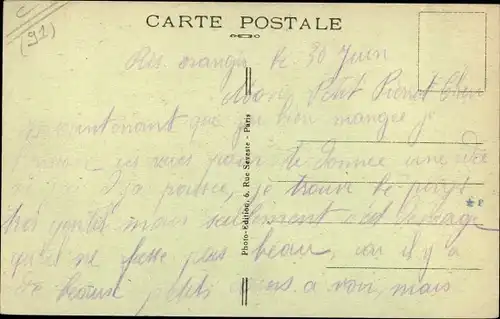 (91)
CARTE POSTALE
Ris orangis le 30 Juin
Mon Petit Pierrot Cher
Maintenant que j'ai bien mangé je
vues pour te donner une idée
je trouve le pays
très gentil mais seulement c'est dommage
qu'il ne fasse pas beau, car il y a
de beaux petits coins a voir, mais
Photo-Edition, 6, Rue Seveste - Paris